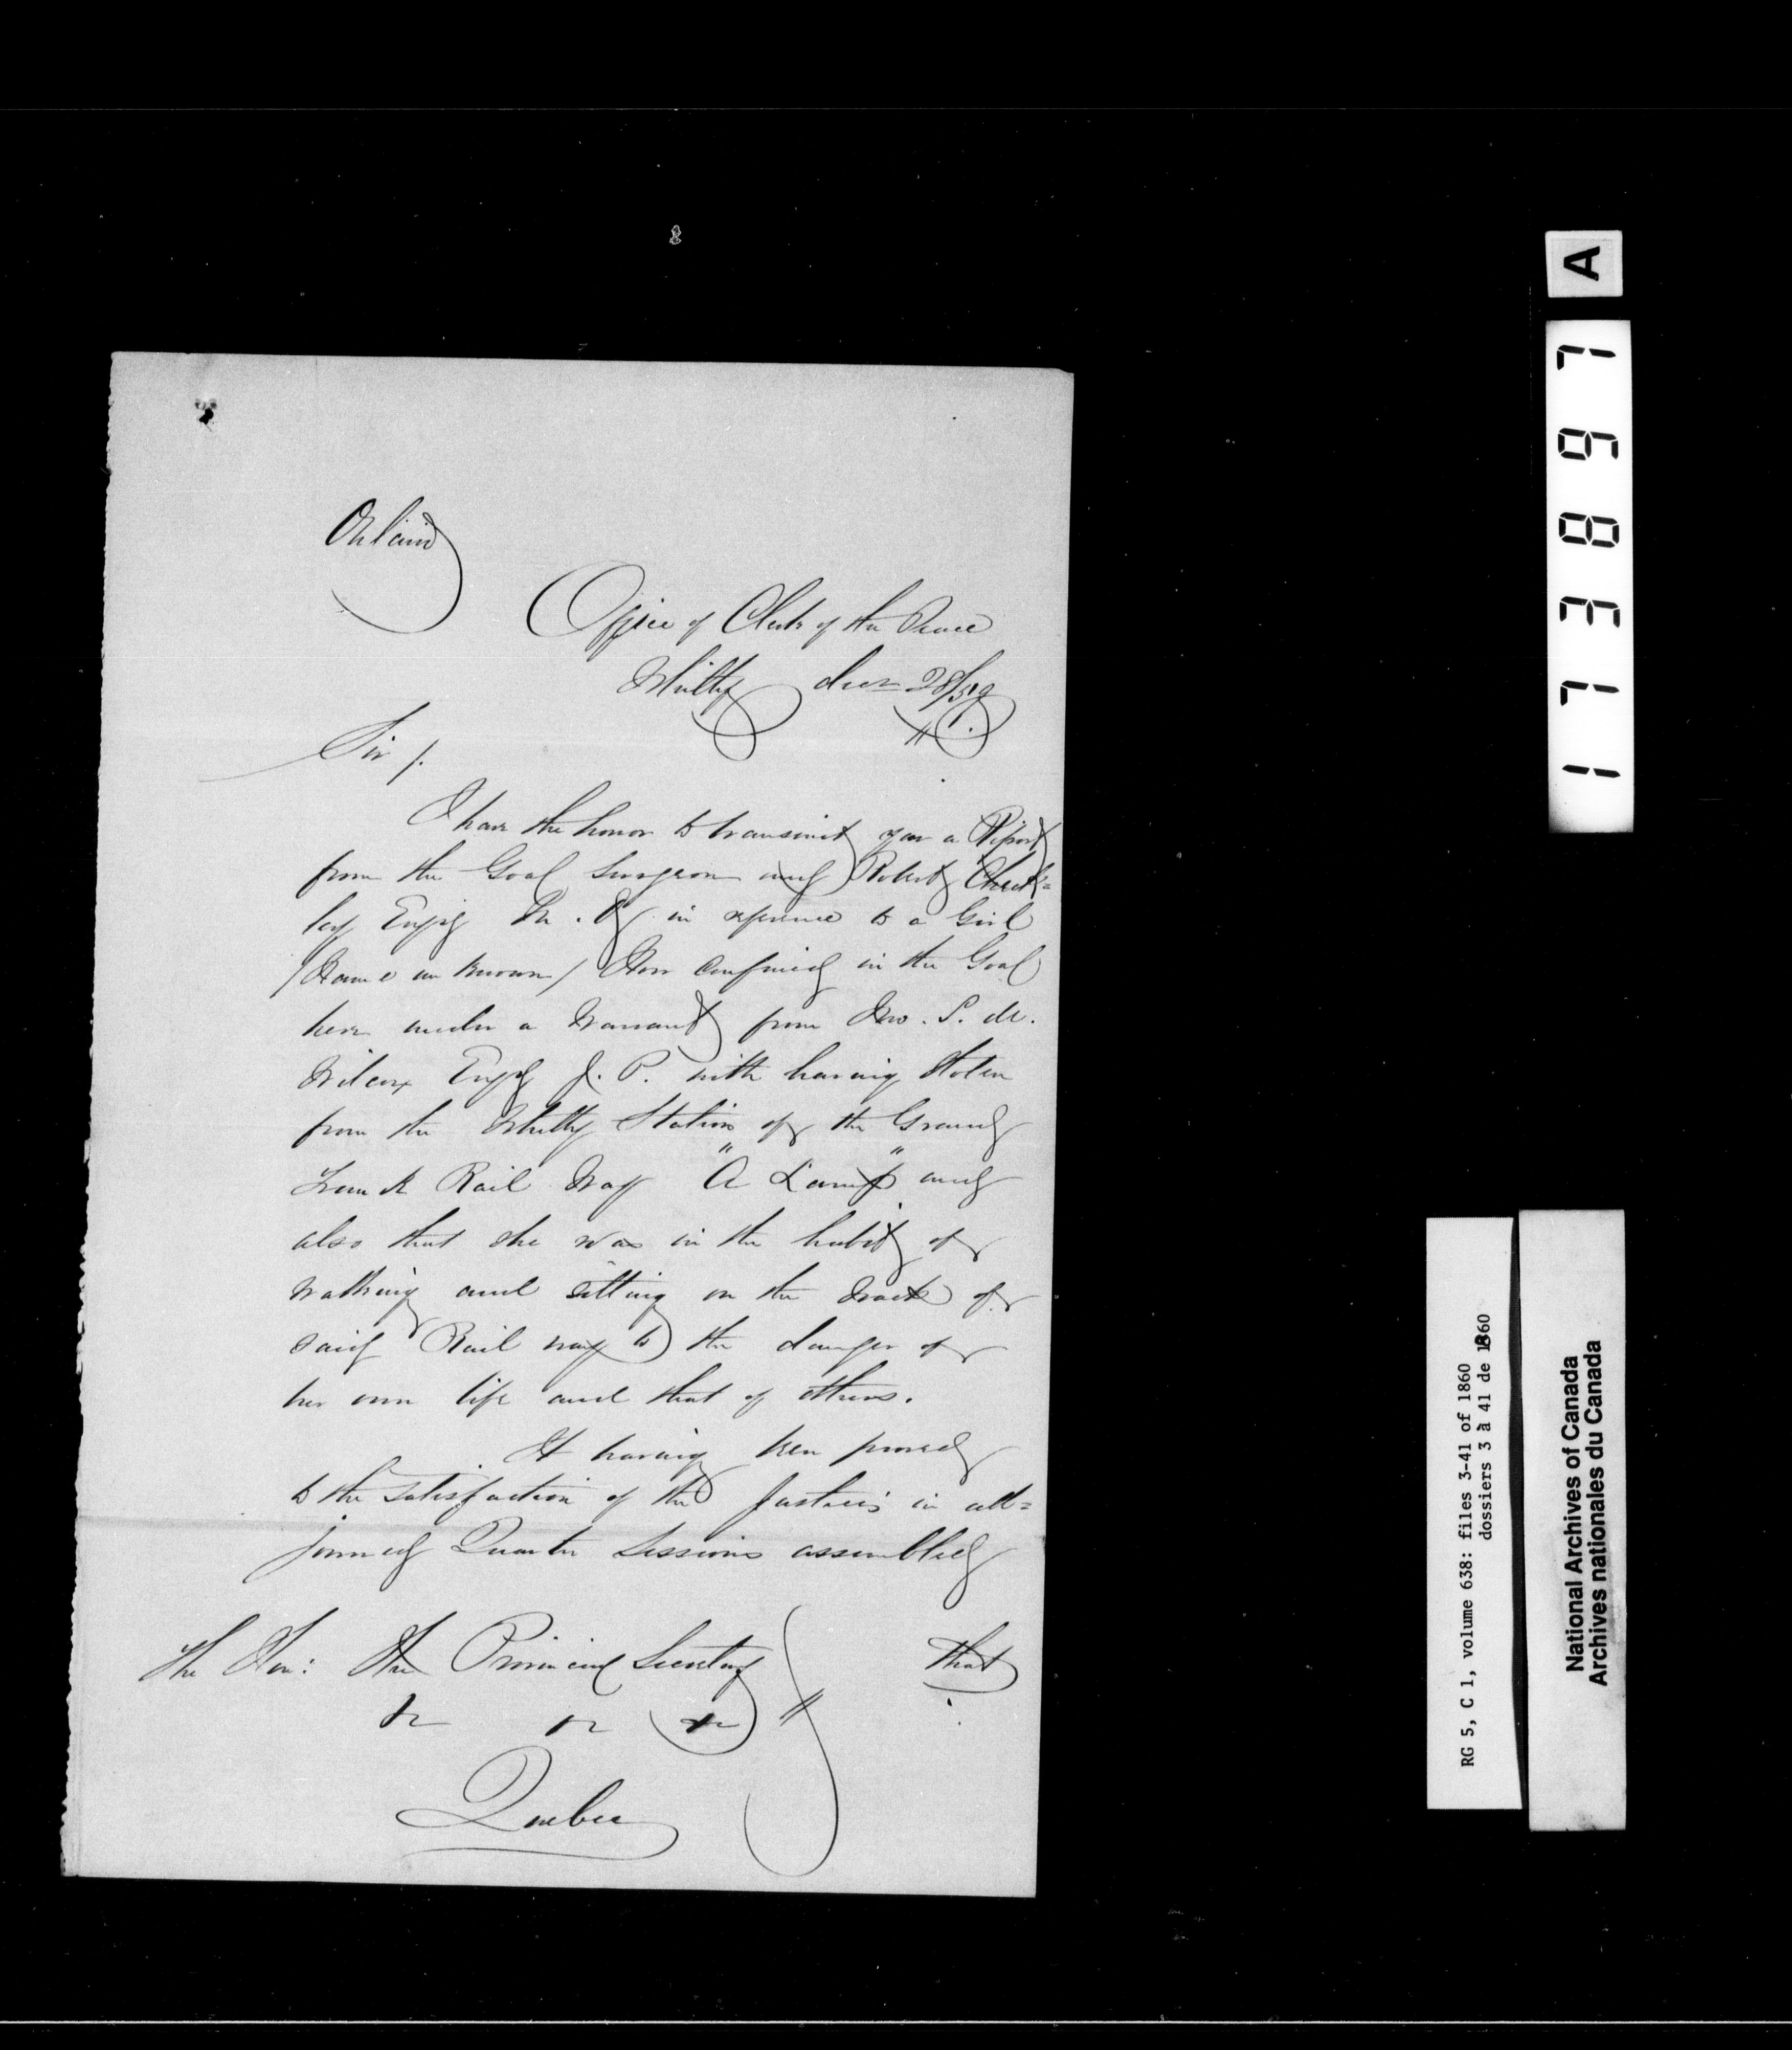 Office of Clerk of the Peace
Whitby Decr 28/59
Sir /.
I have the honor to transmit you a Report
from the Goal Surgeon and Robert
Esqr M. in reference to a Girl
/Name un known/ Now confined in the Goal
here under a Warrant from Jno. S. M.
Wilcox Esqr J. P. with having stolen
from the Whitby Station of the Grand
Trunk Rail Way "A Lamp" and
also that she was in the habit of
walking and sitting on the track of
said Rail way to the danger of
her own life and that of others.
It having been proved
to the satisfaction of the Justices in ad=
journed Quarter Sessions assembled
that
The Hon: the Provincial Secretary
&c &c &c
Quebec
A
173897
RG 5, C 1, volume 638: files 3-41 of 1860
dossiers 3 à 41 de 1860
National Archives of Canada
Archives nationales du Canada